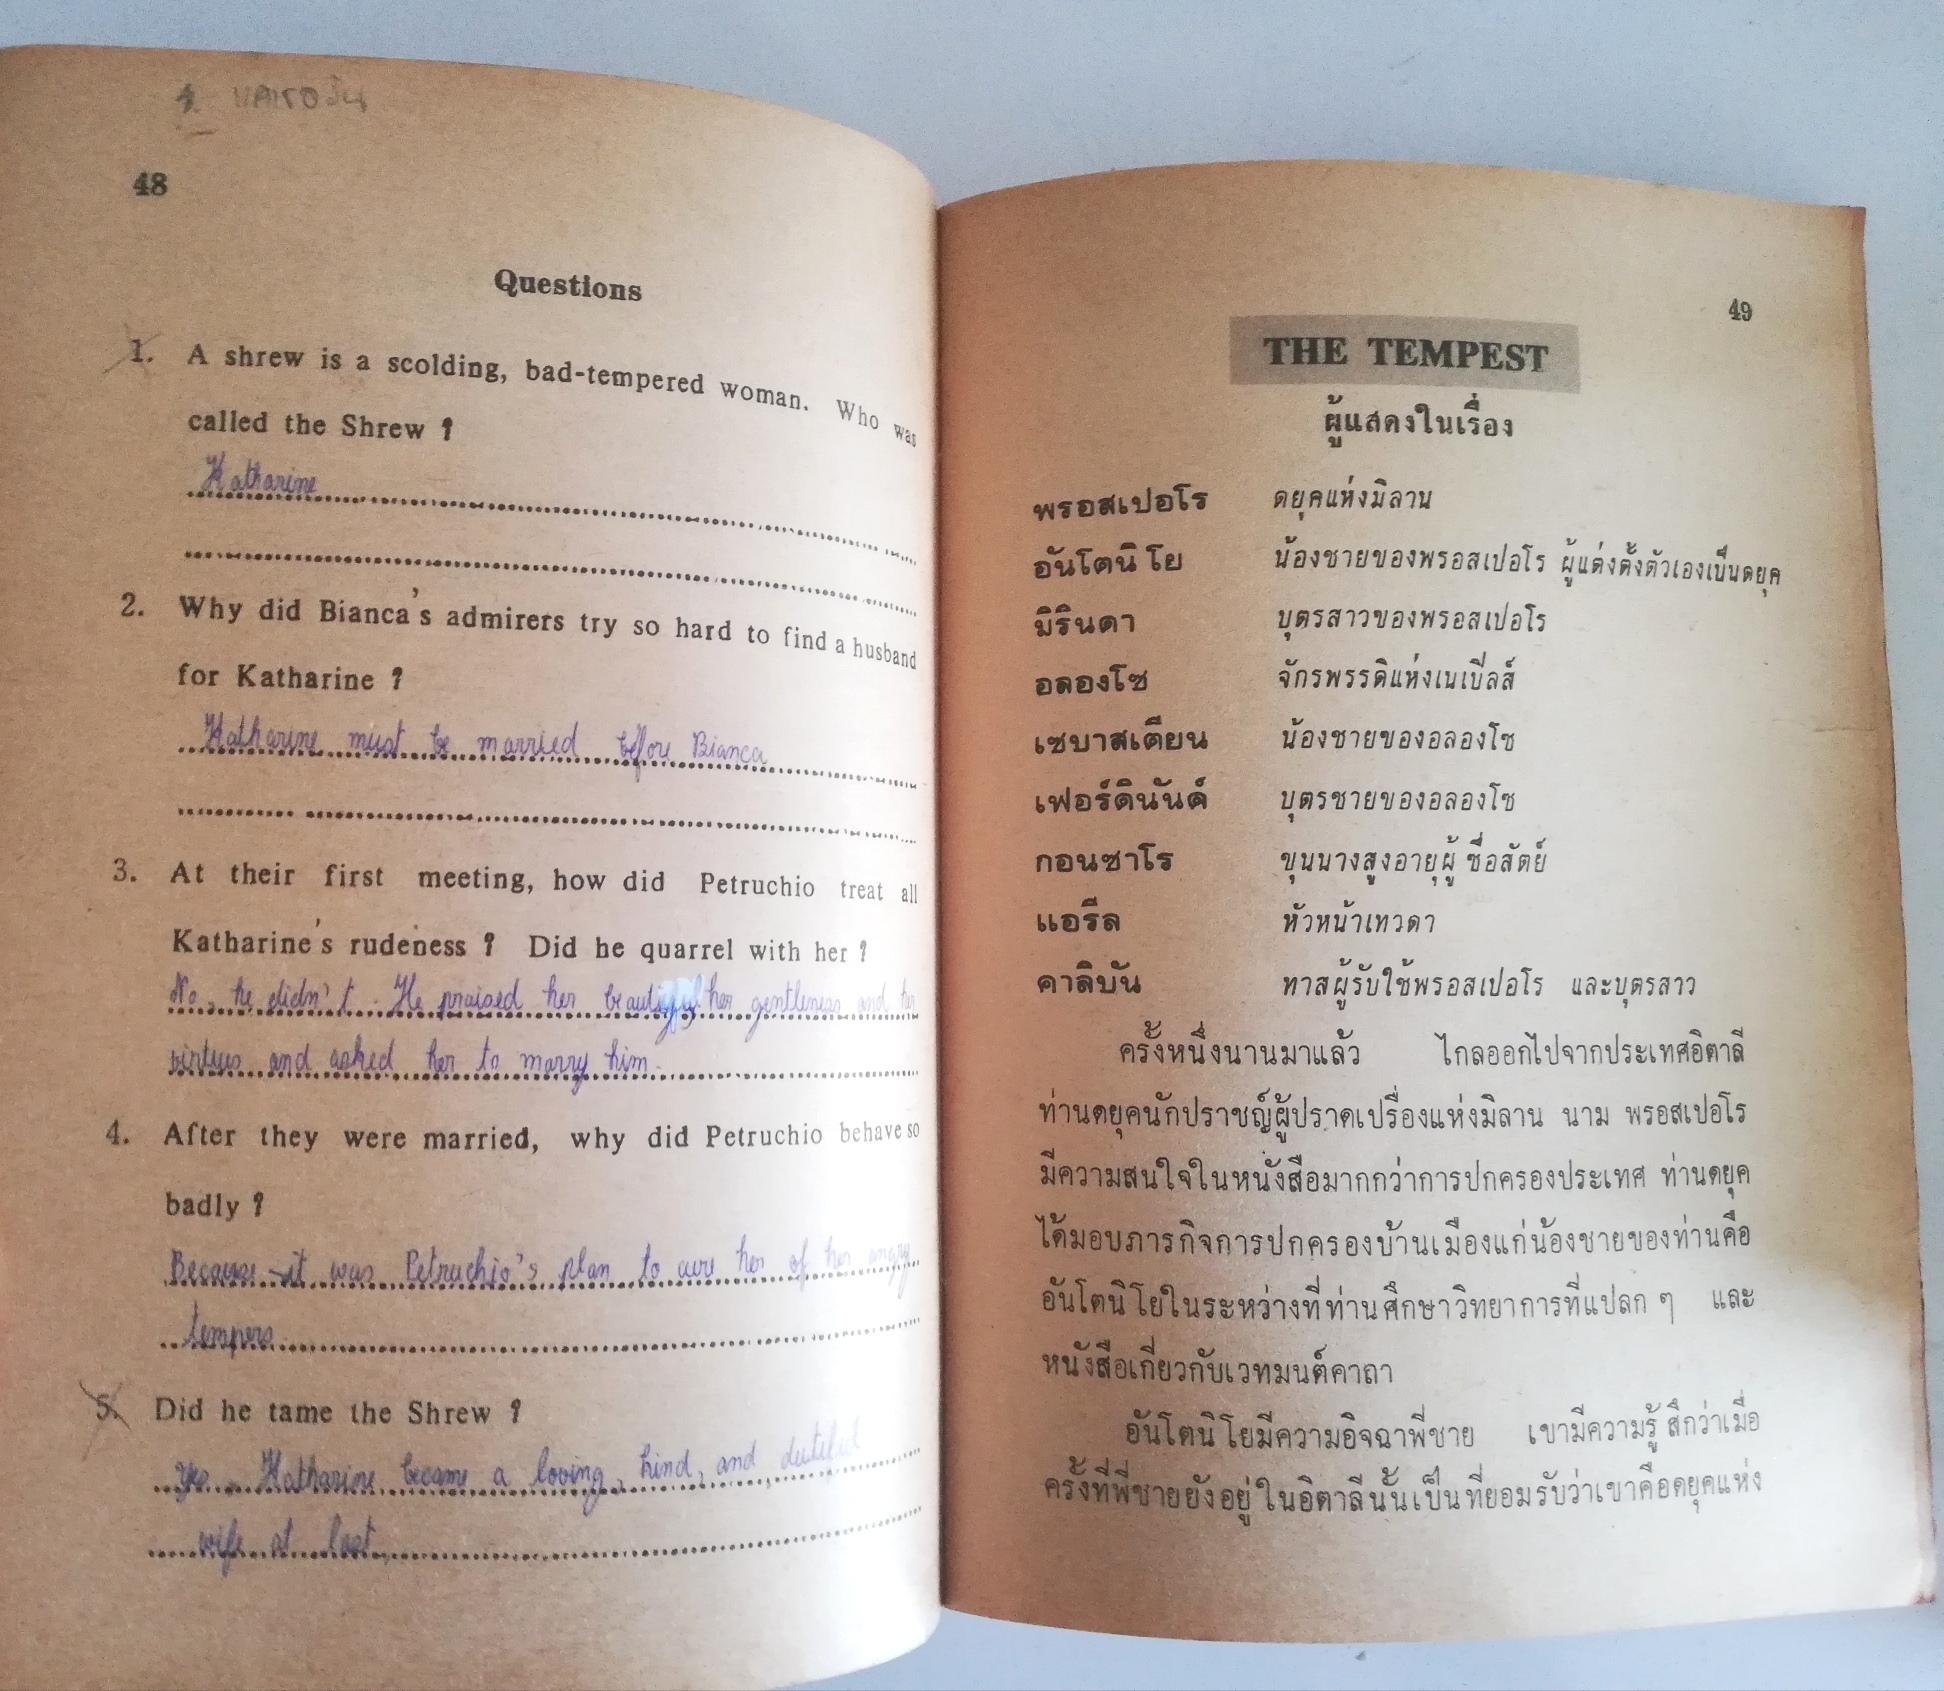 48
Questions
1. A shrew is a scolding, bad-tempered woman. Who was
called the Shrew ?
Katharine
2. Why did Bianca's admirers try so hard to find a husband
for Katharine ?
Katharine must be married before Bianca
3. At their first meeting, how did Petruchio treat all
Katharine's rudeness ? Did he quarrel with her ?
No, he didn't. He praised her beautiful her gentleness and her
virtues and asked her to marry him.
4. After they were married, why did Petruchio behave so
badly ?
Because it was Petruchio's plan to cure her of her angry
tempers
5. Did he tame the Shrew ?
yes, Katharine became a loving, kind, and dutiful
wife at last.
49
THE TEMPEST
ผู้แสดงในเรื่อง
พรอสเปอโร ดยุคแห่งมิลาน
อันโตนิโย น้องชายของพรอสเปอโร ผู้แต่งตั้งตัวเองเป็นดยุค
มิรินดา บุตรสาวของพรอสเปอโร
อลองโซ จักรพรรดิแห่งเนเปิลส์
เซบาสเตียน น้องชายของอลองโซ
เฟอร์ดินันด์ บุตรชายของอลองโซ
กอนซาโร ขุนนางสูงอายุผู้ซื่อสัตย์
แอรีล หัวหน้าเทวดา
คาลิบัน ทาสผู้รับใช้พรอสเปอโร และบุตรสาว
ครั้งหนึ่งนานมาแล้ว ไกลออกไปจากประเทศอิตาลี
ท่านดยุคนักปราชญ์ผู้ปราดเปรื่องแห่งมิลาน นาม พรอสเปอโร
มีความสนใจในหนังสือมากกว่าการปกครองประเทศ ท่านดยุค
ได้มอบภารกิจการปกครองบ้านเมืองแก่น้องชายของท่านคือ
อันโตนิโยในระหว่างที่ท่านศึกษาวิทยาการที่แปลก ๆ และ
หนังสือเกี่ยวกับเวทมนต์คาถา
อันโตนิโยมีความอิจฉาพี่ชาย เขามีความรู้สึกว่าเมื่อ
ครั้งที่พี่ชายยังอยู่ในอิตาลีนั้นเป็นที่ยอมรับว่าเขาคือดยุคแห่ง